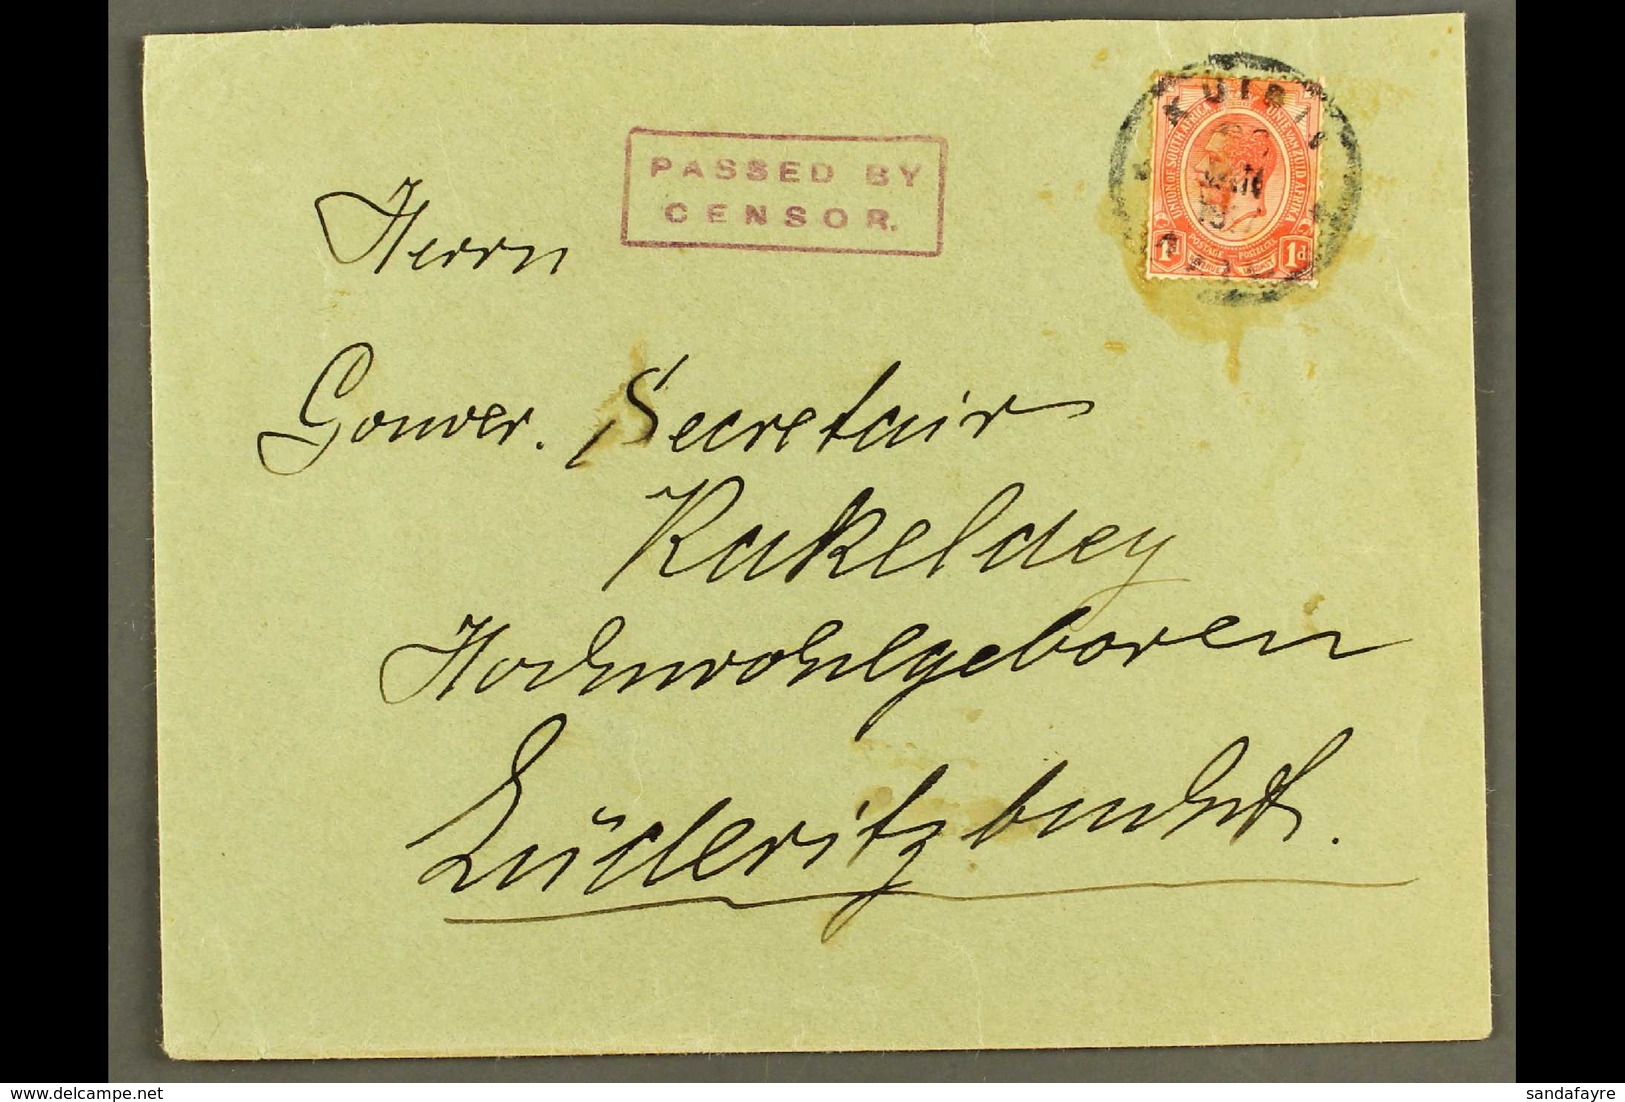 PASSED BY
CENSOR.
KUIBIS
UNION OF SOUTH AFRICA
UNIE VAN ZUID AFRIKA
POSTAGE POSTZEGEL
1d 1d
Herrn
Gouver. Secretair
Rakeldey
Hochwohlgeboren
Lüderitzbucht.
sandafayre